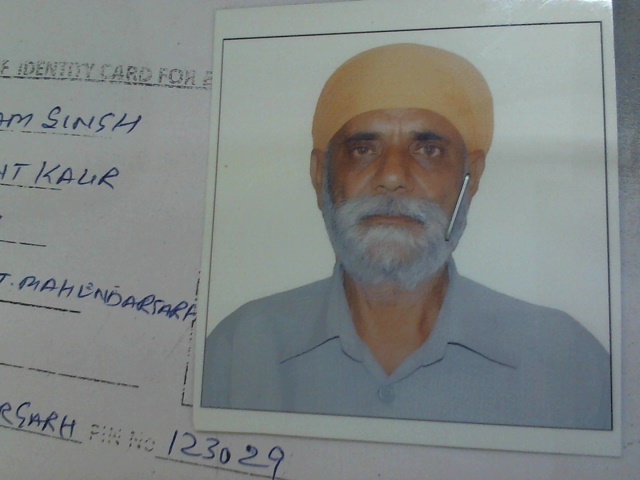 IDENTITY CARD FOR
SINGH
KAUR
T. MAHENDARGARH
RGARH PIN NO 123029